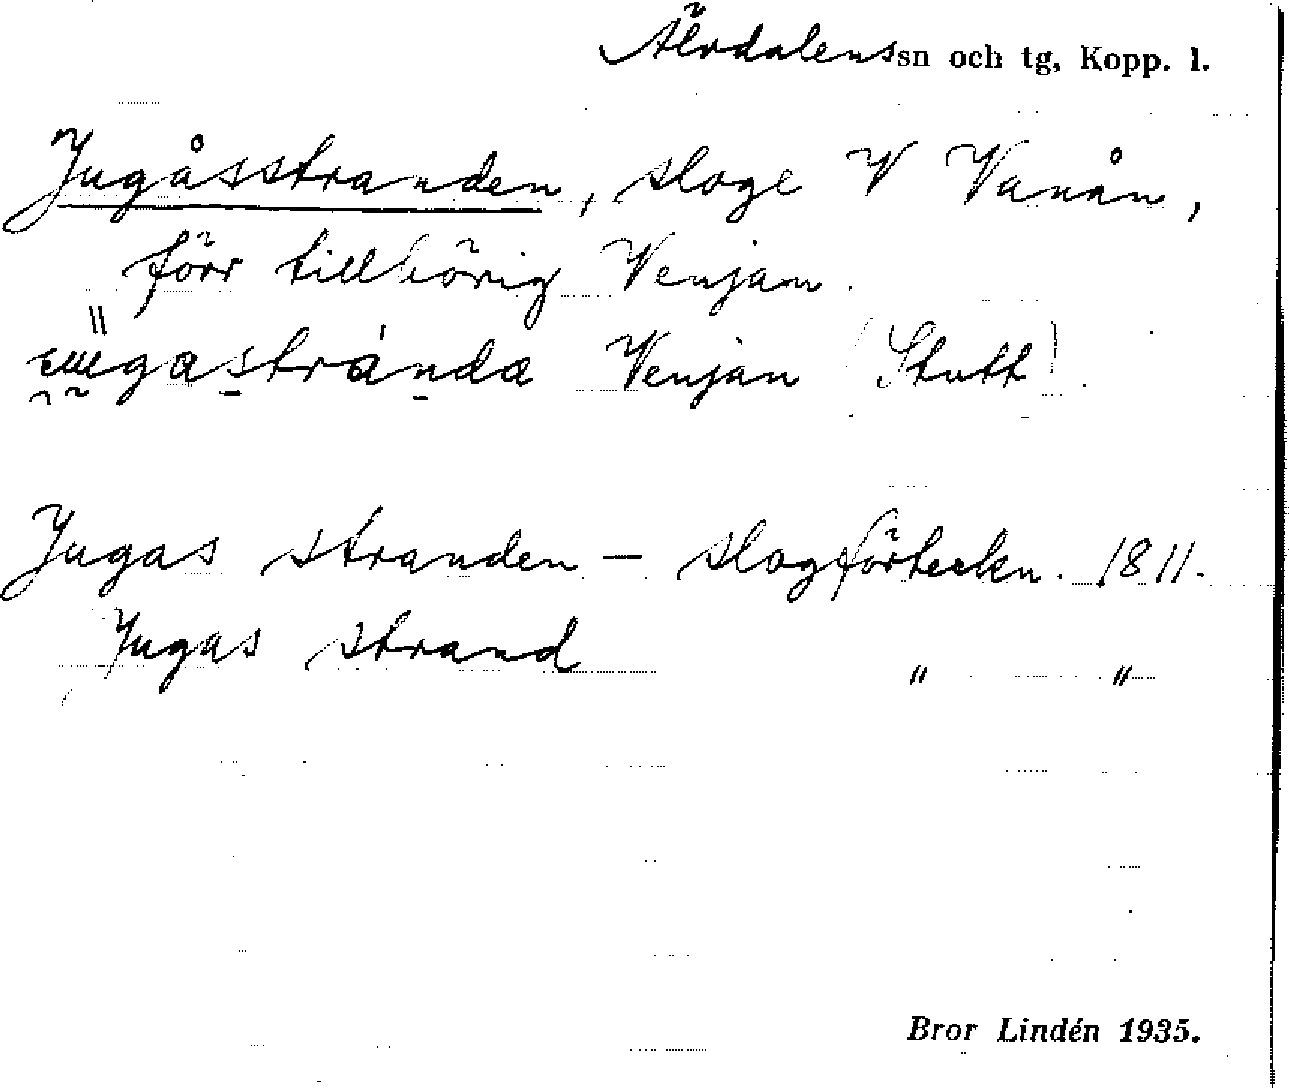 Älvdalens sn och tg, Kopp. l.
Jugåsstranden, sloge V Vanån,
förr tillhörig Venjan.
Venjan (Stutt)
Jugas stranden — slogförteckn. 1811.
Jugas strand " "
Bror Lindén 1935.